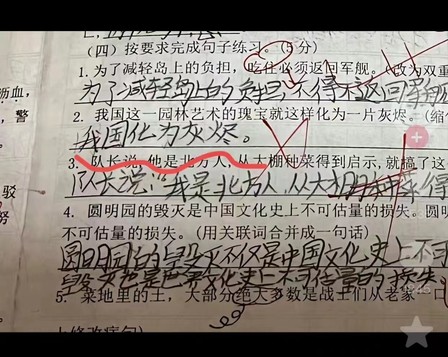 (四)按要求完成句子练习。(5分)
沥血,
1.为了减轻岛上的负担,吃住必须返回军舰。(改为双重
为了减轻岛上的负担,不得不返回军舰
警
2.我国这一园林艺术的瑰宝就这样化为一片灰烬。(缩
我国化为灰烬。
3.队长说,他是北方人,从大棚种菜得到启示,就搞了这
驳
队长说:"我是北方人,从大棚种菜得
努
4.圆明园的毁灭是中国文化史上不可估量的损失。圆明
不可估量的损失。(用关联词合并成一句话)
圆明园的毁灭不仅是中国文化史上不可
毁灭也是世界文化史上不可估量的损失
5.菜地里的土,大部分绝大多数是战士们从老家一口